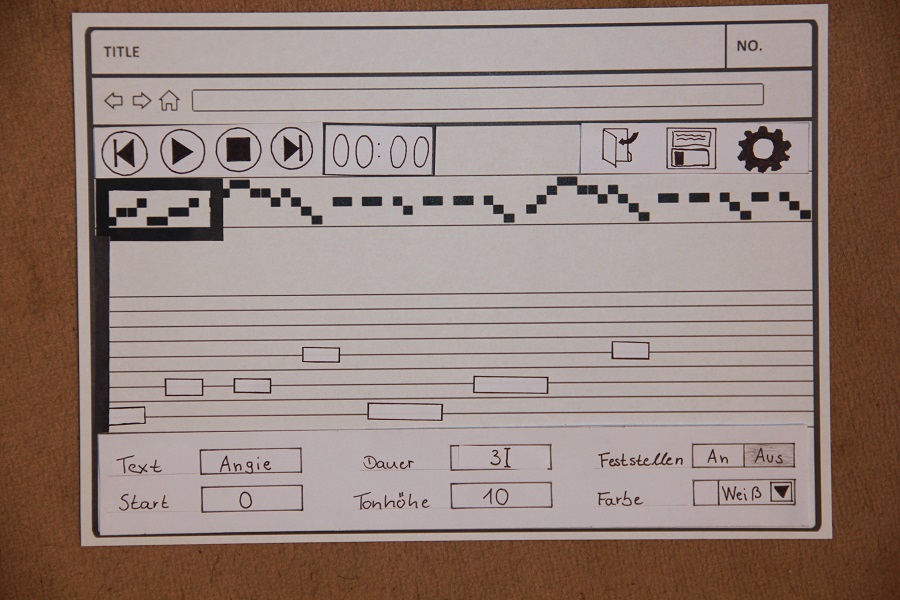 TITLE NO.
00:00
Text Angie Dauer 3I Feststellen An Aus
Start 0 Tonhöhe 10 Farbe Weiß